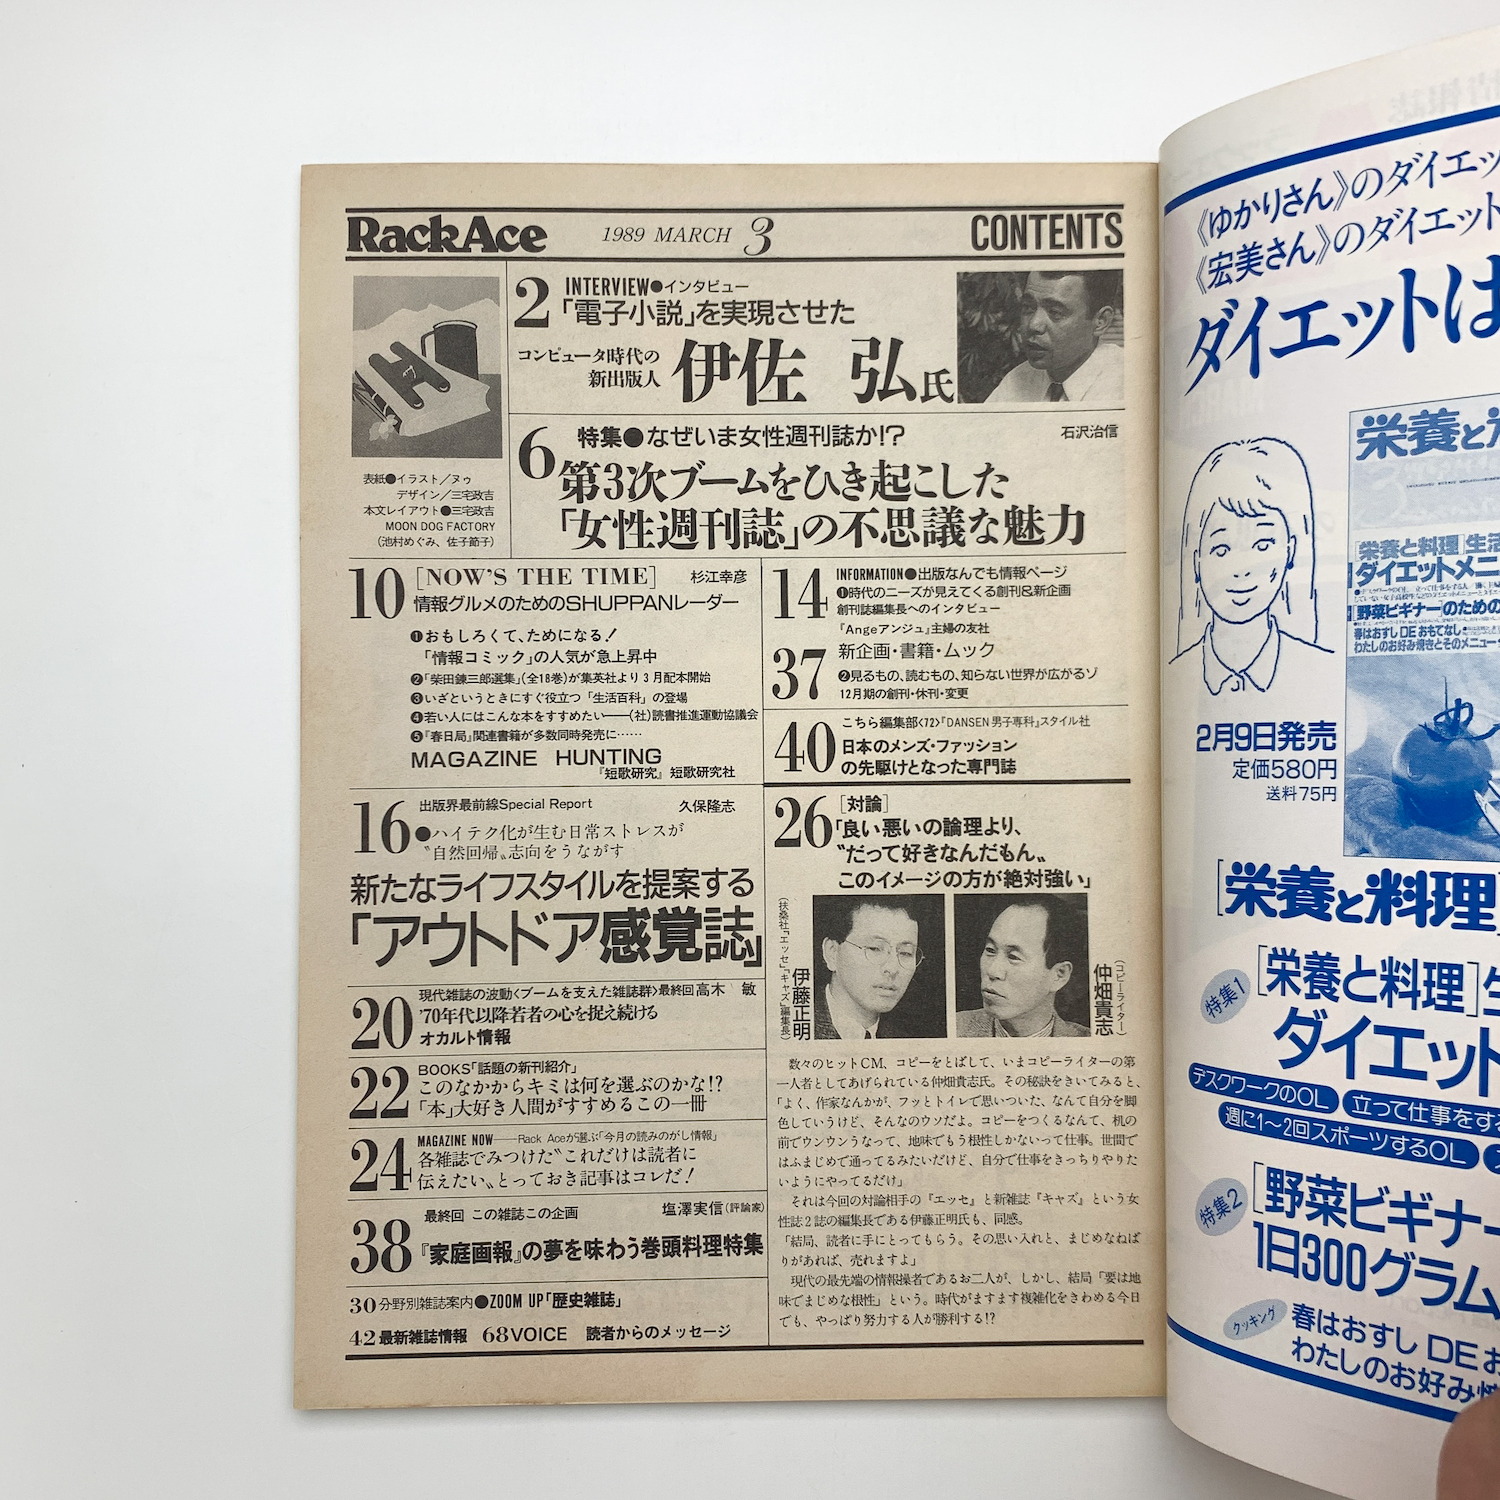 RackAce 1989 MARCH 3 CONTENTS
2 INTERVIEW●インタビュー
「電子小説」を実現させた
コンピュータ時代の
新出版人
伊佐 弘氏
6 特集●なぜいま女性週刊誌か!? 石沢治信
第3次ブームをひき起こした
「女性週刊誌」の不思議な魅力
表紙●イラスト/ヌゥ
デザイン/三宅政吉
本文レイアウト●三宅政吉
MOON DOG FACTORY
(池村めぐみ、佐子節子)
10 [NOW'S THE TIME] 杉江幸彦
情報グルメのためのSHUPPANレーダー
❶おもしろくて、ためになる!
「情報コミック」の人気が急上昇中
❷「柴田錬三郎選集」(全18巻)が集英社より3月配本開始
❸いざというときにすぐ役立つ「生活百科」の登場
❹若い人にはこんな本をすすめたい——(社)読書推進運動協議会
❺『春日局』関連書籍が多数同時発売に……
MAGAZINE HUNTING
『短歌研究』短歌研究社
14 INFORMATION●出版なんでも情報ページ
❶時代のニーズが見えてくる創刊&新企画
創刊誌編集長へのインタビュー
『Angeアンジュ』主婦の友社
37 新企画・書籍・ムック
❷見るもの、読むもの、知らない世界が広がるゾ
12月期の創刊・休刊・変更
40 こちら編集部〈72〉『DANSEN男子専科』スタイル社
日本のメンズ・ファッション
の先駆けとなった専門誌
16 出版界最前線Special Report 久保隆志
●ハイテク化が生む日常ストレスが
〝自然回帰〟志向をうながす
新たなライフスタイルを提案する
「アウトドア感覚誌」
20 現代雑誌の波動〈ブームを支えた雑誌群〉最終回 高木 敏
'70年代以降若者の心を捉え続ける
オカルト情報
22 BOOKS「話題の新刊紹介」
このなかからキミは何を選ぶのかな!?
「本」大好き人間がすすめるこの一冊
24 MAGAZINE NOW——Rack Aceが選ぶ「今月の読みのがし情報」
各雑誌でみつけた〝これだけは読者に
伝えたい〟とっておき記事はコレだ!
38 最終回 この雑誌この企画 塩澤実信(評論家)
『家庭画報』の夢を味わう巻頭料理特集
30 分野別雑誌案内●ZOOM UP「歴史雑誌」
42 最新雑誌情報 68 VOICE 読者からのメッセージ
26 [対論]
「良い悪いの論理より、
〝だって好きなんだもん〟
このイメージの方が絶対強い」
(扶桑社『エッセ』『キャズ』編集長)
伊藤正明
(コピーライター)
仲畑貴志
数々のヒットCM、コピーをとばして、いまコピーライターの第
一人者としてあげられている仲畑貴志氏。その秘訣をきいてみると、
「よく、作家なんかが、フッとトイレで思いついた、なんて自分を脚
色していうけど、そんなのウソだよ。コピーをつくるなんて、机の
前でウンウンうなって、地味でもう根性しかないって仕事。世間で
はふまじめで通ってるみたいだけど、自分で仕事をきっちりやりた
いようにやってるだけ」
それは今回の対論相手の『エッセ』と新雑誌『キャズ』という女
性誌2誌の編集長である伊藤正明氏も、同感。
「結局、読者に手にとってもらう。その思い入れと、まじめなねば
りがあれば、売れますよ」
現代の最先端の情報操者であるお二人が、しかし、結局「要は地
味でまじめな根性」という。時代がますます複雑化をきわめる今日
でも、やっぱり努力する人が勝利する!?
《ゆかりさん》のダイエッ
《宏美さん》のダイエット
ダイエットは
栄養と
[栄養と料理]生活
ダイエットメニ
[野菜ビギナー]のための
春はおすし DE おもてなし
わたしのお好み焼きとそのメニュー
2月9日発売
定価580円
送料75円
[栄養と料理]
特集1
[栄養と料理]生
ダイエット
デスクワークのOL
立って仕事をする
週に1〜2回スポーツするOL
特集2
[野菜ビギナー
1日300グラム
クッキング
春はおすし DE お
わたしのお好み焼